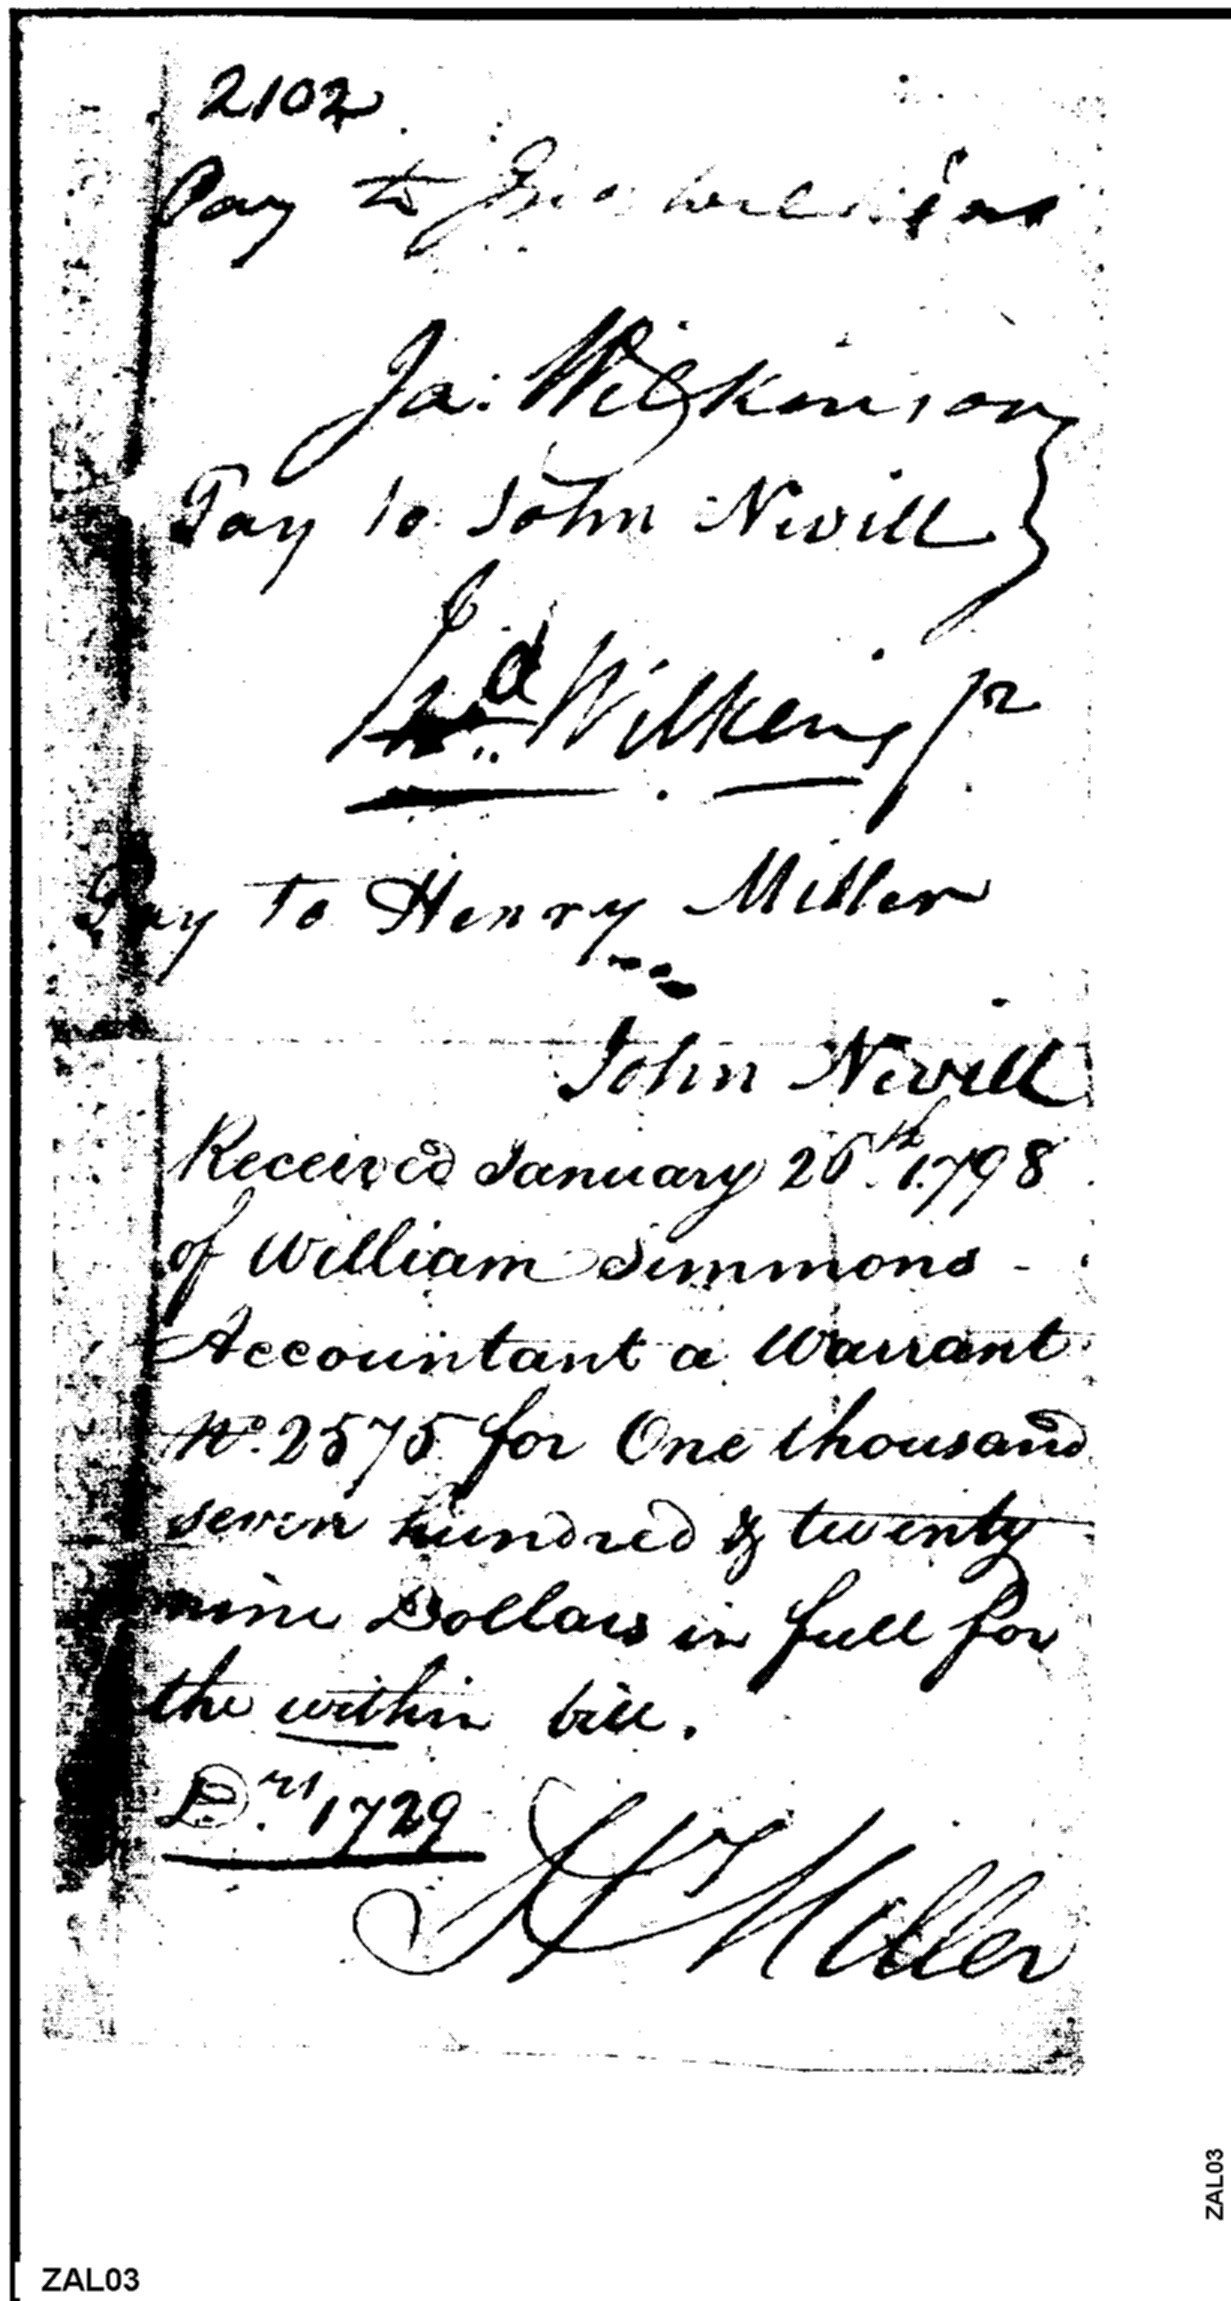 2102
Pay to Jno Wilkins
Ja: Wilkinson
Pay to John Nevill
Wilkins Jr
Pay to Henry Miller
John Nevill
Received January 26th 1798
of William Simmons
Accountant a Warrant
No. 2575 for One thousand
seven hundred & twenty
nine Dollars in full for
the within bill.
Drs 1729
Hy Miller
ZAL03
ZAL03